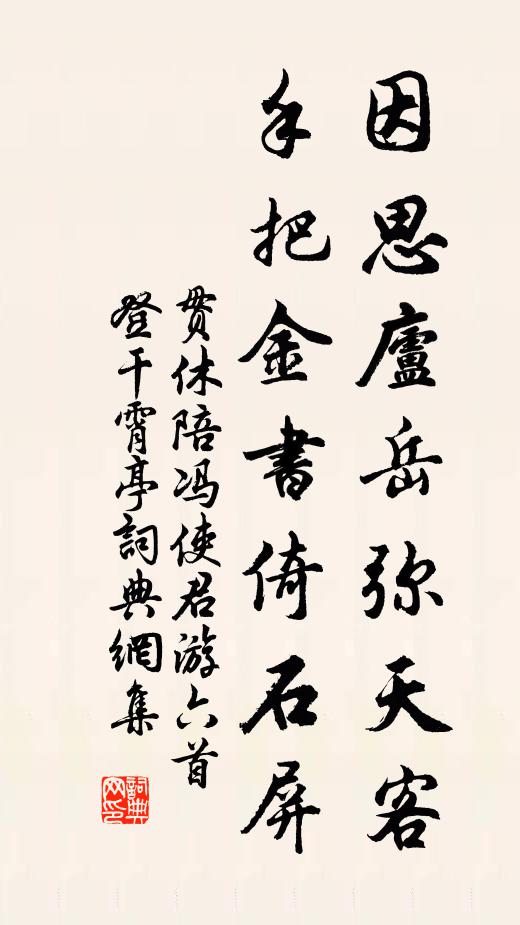 因思廬岳弥天客
手把金書倚石屏
贯休陪冯使君游六首
登干霄亭詞典網集
詞典網印